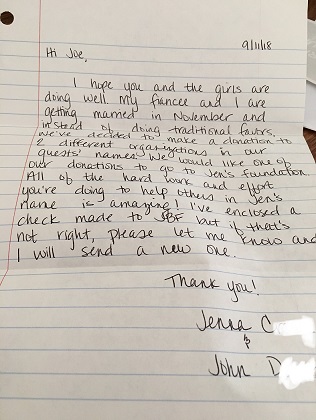 9/11/18
Hi Joe,
I hope you and the girls are
doing well. My fiancee and I are
getting married in November and
instead of doing traditional favors,
we've decided to make a donation to
2 different organizations in our
guests' names. We would like one of
our donations to go to Jen's foundation.
All of the hard work and effort
you're doing to help others in Jen's
name is amazing! I've enclosed a
check made to JBF but if that's
not right, please let me know and
I will send a new one.
Thank you!
Jenna C
&
John D